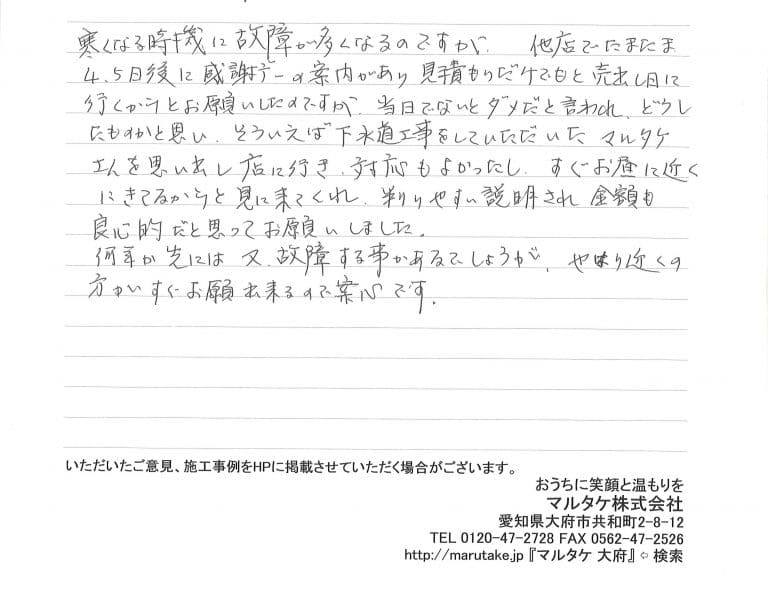 寒くなる時機に故障が多くなるのですが、他店でたまたま
4.5日後に感謝デーの案内があり見積もりだけでもと売出し日に
行くからとお願いしたのですが、当日でないとダメだと言われ、どうし
たものかと思い、そういえば下水道工事をしていただいたマルタケ
さんを思い出し店に行き、対応もよかったし、すぐお昼に近く
にきてるからと見に来てくれ、判りやすい説明され金額も
良心的だと思ってお願いしました。
何年か先には又、故障する事があるでしょうが、やはり近くの
方がいすぐお願出来るので案心です。
いただいたご意見、施工事例をHPに掲載させていただく場合がございます。
おうちに笑顔と温もりを
マルタケ株式会社
愛知県大府市共和町2-8-12
TEL 0120-47-2728 FAX 0562-47-2526
http://marutake.jp『マルタケ 大府』⇦ 検索